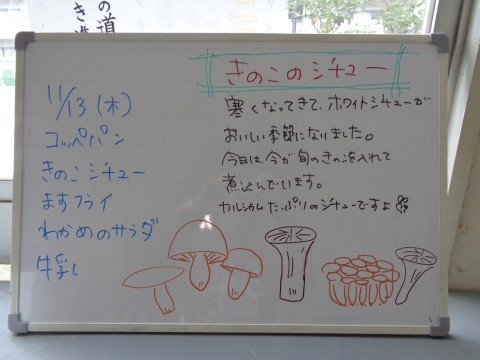 の道
き
11/13(木)
コッペパン
きのこシチュー
ますフライ
わかめのサラダ
牛乳
きのこのシチュー
寒くなってきて、ホワイトシチューが
おいしい季節になりました。
今日は、今が旬のきのこを入れて
煮込んでいます。
カルシウムたっぷりのシチューですよ